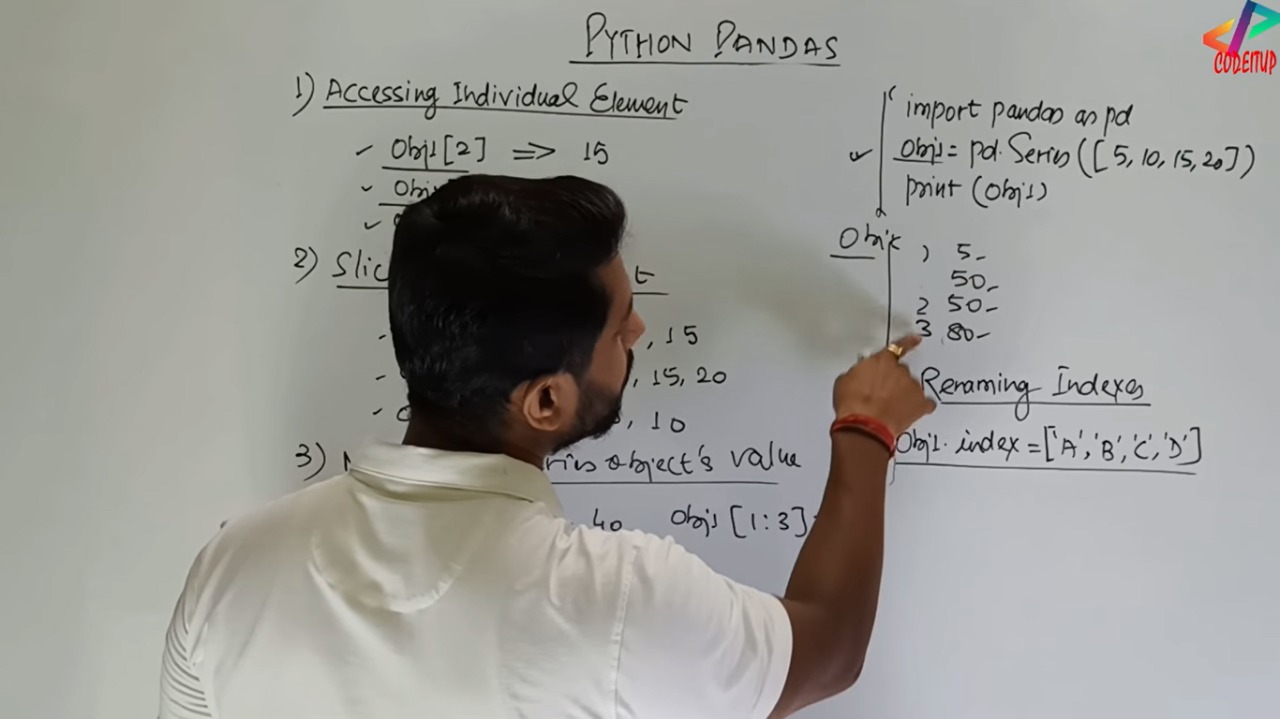 PYTHON PANDAS
CODEITUP
1) Accessing Individual Element
Obj1[2] => 15
Obj
2) Slic t
, 15
, 15, 20
, 10
3) object's value
40 Obj1[1:3]
import pandas as pd
Obj1 = pd.Series([5, 10, 15, 20])
print (Obj1)
5
50
2 50
3 80
Renaming Indexes
Obj1.index = ['A', 'B', 'C', 'D']